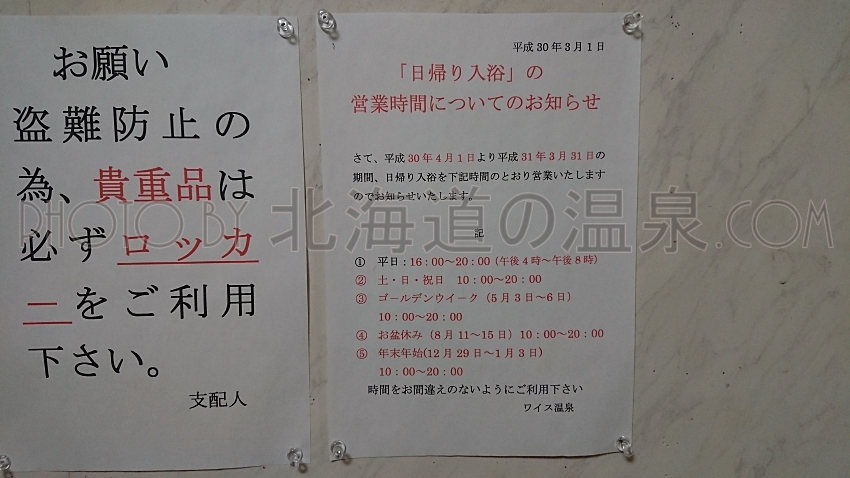 お願い
盗難防止の
為、貴重品は
必ずロッカ
ーをご利用
下さい。
支配人
平成30年3月1日
「日帰り入浴」の
営業時間についてのお知らせ
さて、平成30年4月1日より平成31年3月31日の
期間、日帰り入浴を下記時間のとおり営業いたします
のでお知らせいたします。
記
① 平日：16：00～20：00（午後4時～午後8時）
② 土・日・祝日 10：00～20：00
③ ゴールデンウイーク（5月3日～6日）
10：00～20：00
④ お盆休み（8月11～15日）10：00～20：00
⑤ 年末年始(12月29日～1月3日)
10：00～20：00
時間をお間違えのないようにご利用下さい
ワイス温泉
PHOTO BY 北海道の温泉.COM